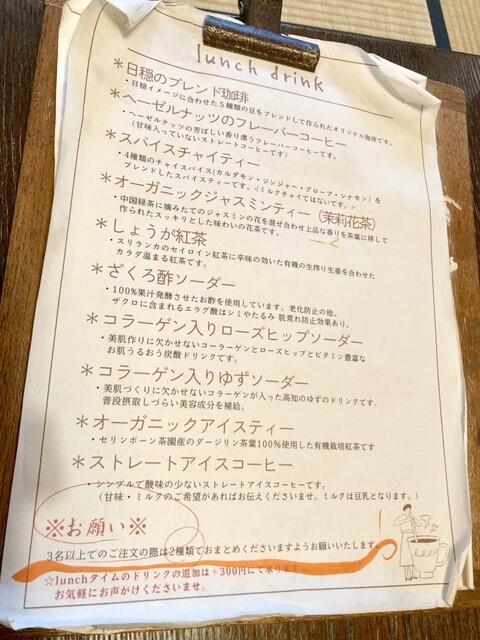 lunch drink
＊日穏のブレンド珈琲
・日穏イメージに合わせた５種類の豆をブレンドして作られたオリジナル珈琲です。
＊ヘーゼルナッツのフレーバーコーヒー
・ヘーゼルナッツの芳ばしい香り漂うフレーバーコーヒーです。
（甘味入っていないストレートコーヒーです）
＊スパイスチャイティー
・4種類のチャイスパイス(カルダモン・ジンジャー・グローブ・シナモン）を
ブレンドしたスパイスティーです。＜ミルクチャイではないです。＞
＊オーガニックジャスミンティー（茉莉花茶）
・中国緑茶に摘みたてのジャスミンの花を混ぜ合わせ上品な香りを茶葉に移して
作られたスッキリとした味わいの花茶です。
＊しょうが紅茶
・スリランカのセイロイン紅茶に辛味の効いた有機の生搾り生姜を合わせた
カラダ温まる紅茶です。
＊ざくろ酢ソーダー
・100%果汁発酵させたお酢を使用しています。老化防止の他、
ザクロに含まれるエラグ酸はシミやたるみ 肌荒れ防止効果あり。
＊コラーゲン入りローズヒップソーダー
・美肌作りに欠かせないコーラーゲンとローズヒップとビタミン豊富な
お肌うるおう炭酸ドリンクです。
＊コラーゲン入りゆずソーダー
・美肌づくりに欠かせないコラーゲンが入った高知のゆずのドリンクです。
普段摂取しづらい美容成分を補給。
＊オーガニックアイスティー
・セリンボーン茶園産のダージリン茶葉100%使用した有機栽培紅茶です
＊ストレートアイスコーヒー
・シンプルで酸味の少ないストレートアイスコーヒーです。
（甘味・ミルクのご希望があればお伝えくださいませ。ミルクは豆乳となります。）
※お願い※
3名以上でのご注文の際は2種類でおまとめくださいますようお願いいたします。
☆lunchタイムのドリンクの追加は+300円にて承ります
お気軽にお声がけくださいませ。